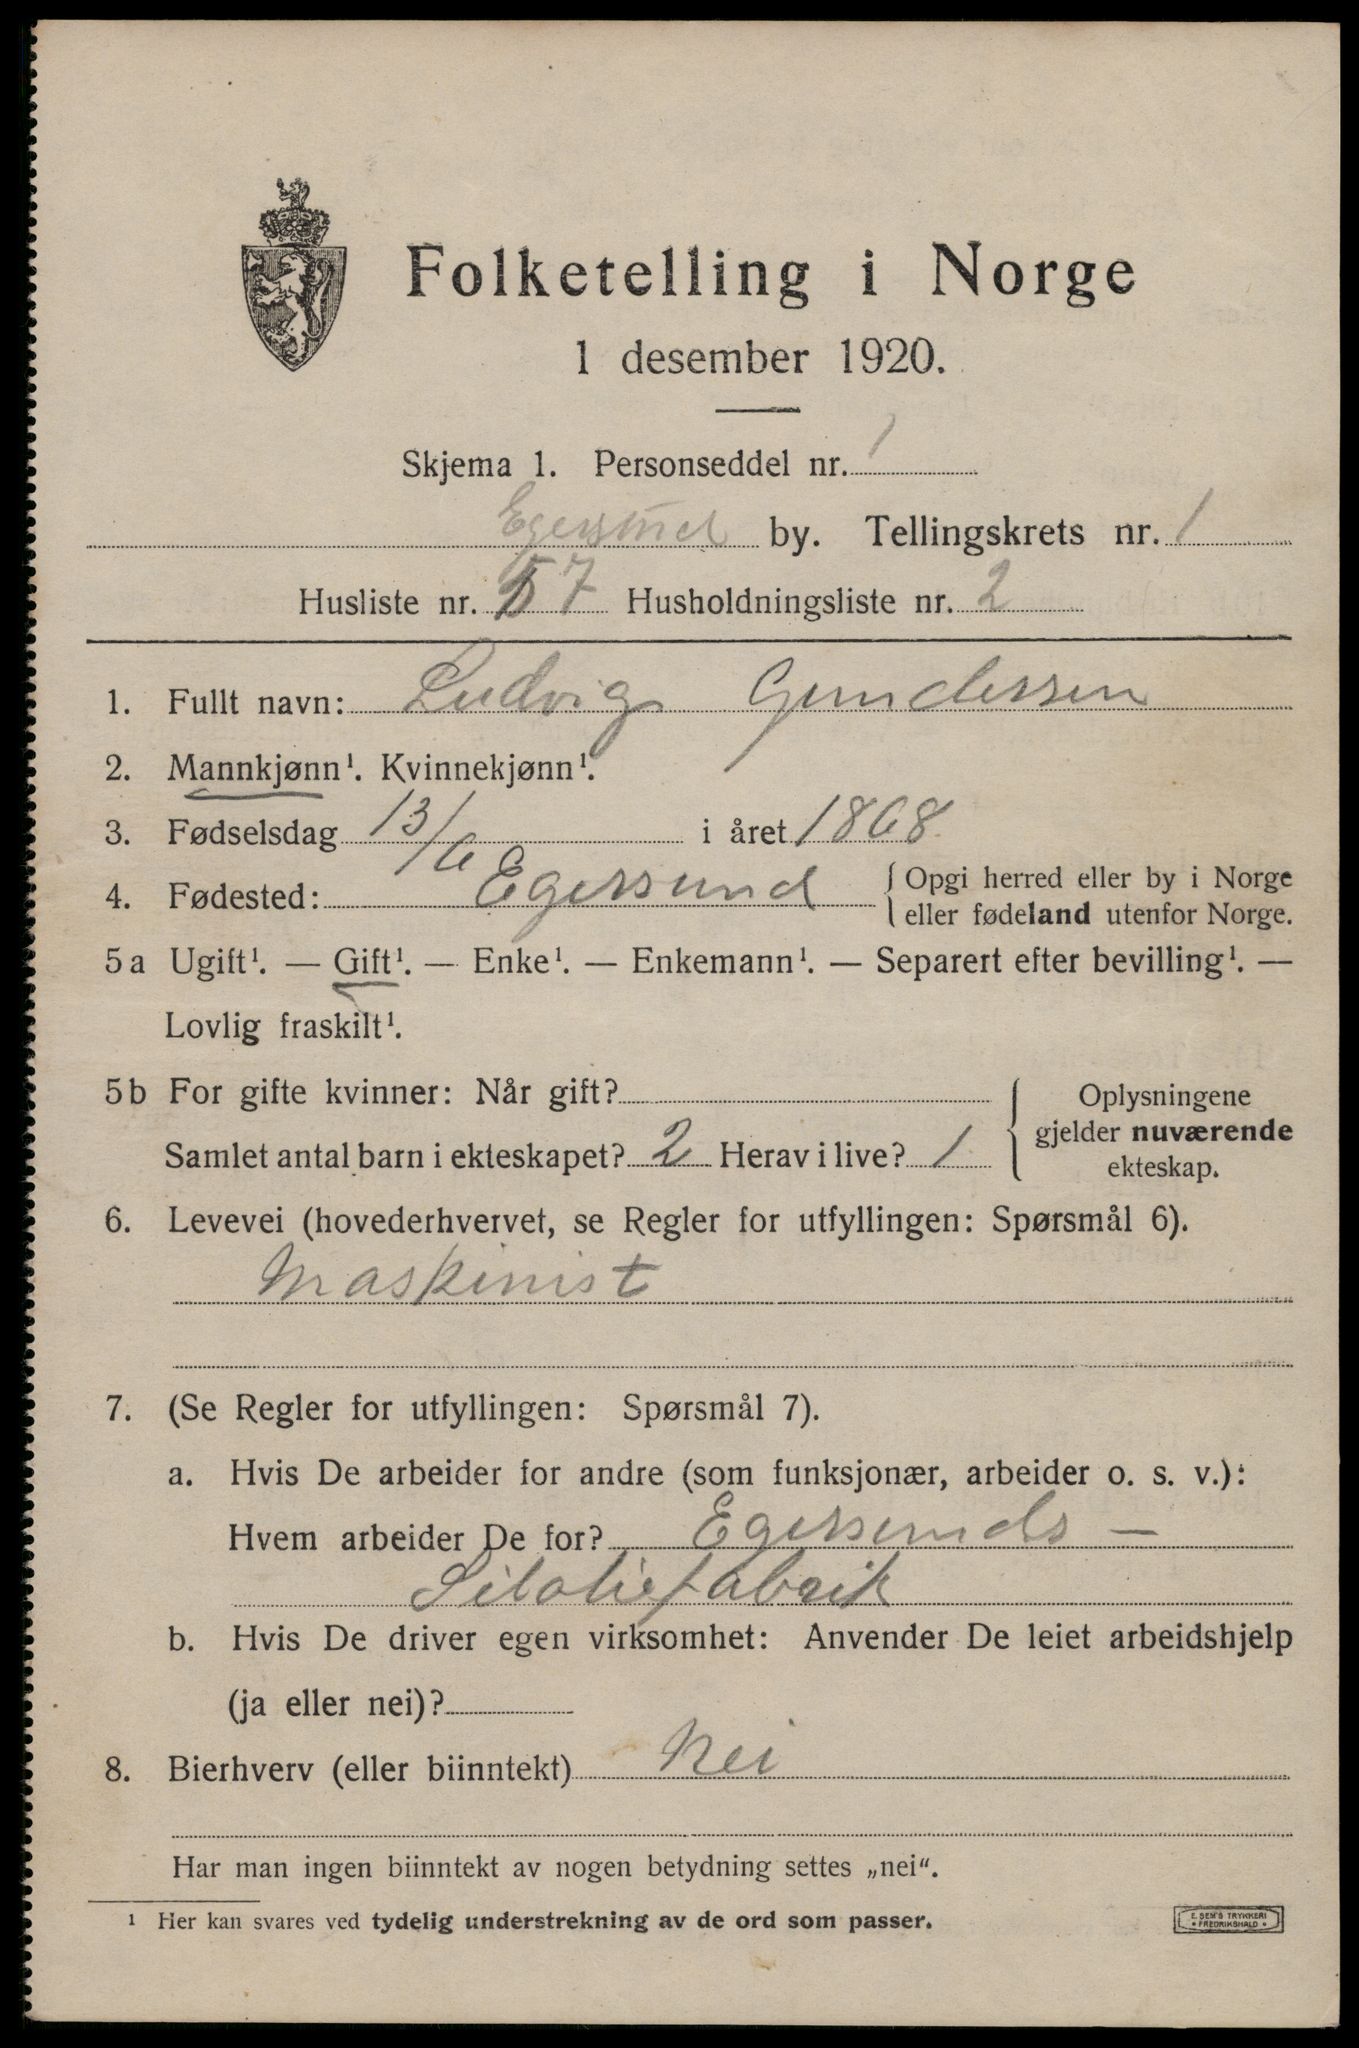 Folketelling i Norge
1 desember 1920.
Skjema 1. Personseddel nr. 1
Egersund by. Tellingskrets nr. 1
Husliste nr. 57 Husholdningsliste nr. 2
1. Fullt navn: Ludvig Gundersen
2. Mannkjønn¹. Kvinnekjønn¹.
3. Fødselsdag 13/6 i året 1868
4. Fødested: Egersund { Opgi herred eller by i Norge
eller fødeland utenfor Norge.
5a Ugift¹. — Gift¹. — Enke¹. — Enkemann¹. — Separert efter bevilling¹. —
Lovlig fraskilt¹.
5b For gifte kvinner: Når gift?
Samlet antal barn i ekteskapet? 2 Herav i live? 1
Oplysningene
gjelder nuværende
ekteskap.
6. Levevei (hovederhvervet, se Regler for utfyllingen: Spørsmål 6).
Maskinist
7. (Se Regler for utfyllingen: Spørsmål 7).
a. Hvis De arbeider for andre (som funksjonær, arbeider o. s. v.):
Hvem arbeider De for? Egersunds –
Sildoliefabrik
b. Hvis De driver egen virksomhet: Anvender De leiet arbeidshjelp
(ja eller nei)?
8. Bierhverv (eller biinntekt) Nei
Har man ingen biinntekt av nogen betydning settes „nei“.
¹ Her kan svares ved tydelig understrekning av de ord som passer.
E. SEM'S TRYKKERI
FREDRIKSHALD